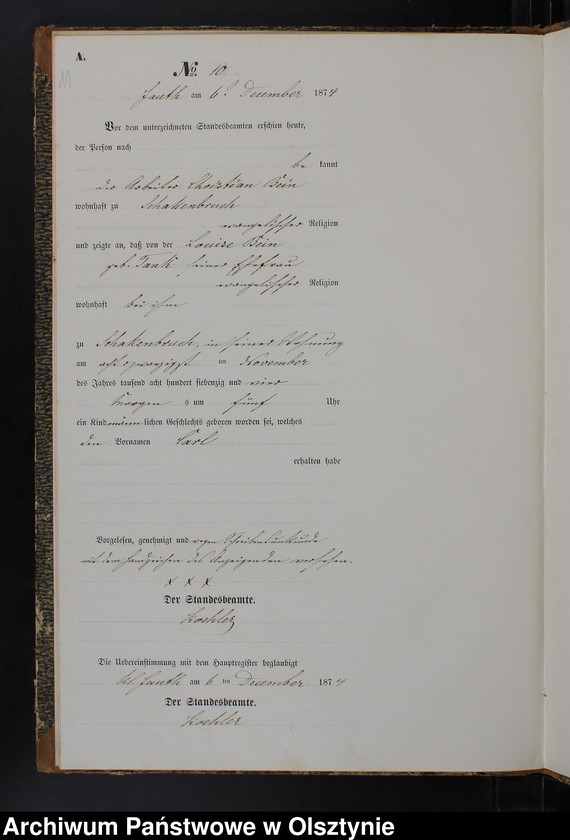 A.
11
No. 10
Fauth am 6t December 1874
Vor dem unterzeichneten Standesbeamten erschien heute,
der Person nach
be kannt
der Arbeiter Christian Bein
wohnhaft zu Schakenbruch
evangelischer Religion
und zeigte an, daß von der Louise Bein
geb. Tank seiner Ehefrau
evangelischer Religion
wohnhaft bei ihm
zu Schakenbruch, in seiner Wohnung
am acht zwanzigst ten November
des Jahres tausend acht hundert siebenzig und vier
Morgen s um fünf Uhr
ein Kind männlichen Geschlechts geboren worden sei, welches
den Vornamen Carl
erhalten habe
Vorgelesen, genehmigt und wegen Schreibensunkunde
mit dem Handzeichen des Anzeigenden versehen.
x x x
Der Standesbeamte.
Koehler
Die Uebereinstimmung mit dem Hauptregister beglaubigt
Fauth am 6 ten December 1874
Der Standesbeamte.
Koehler
Archiwum Państwowe w Olsztynie